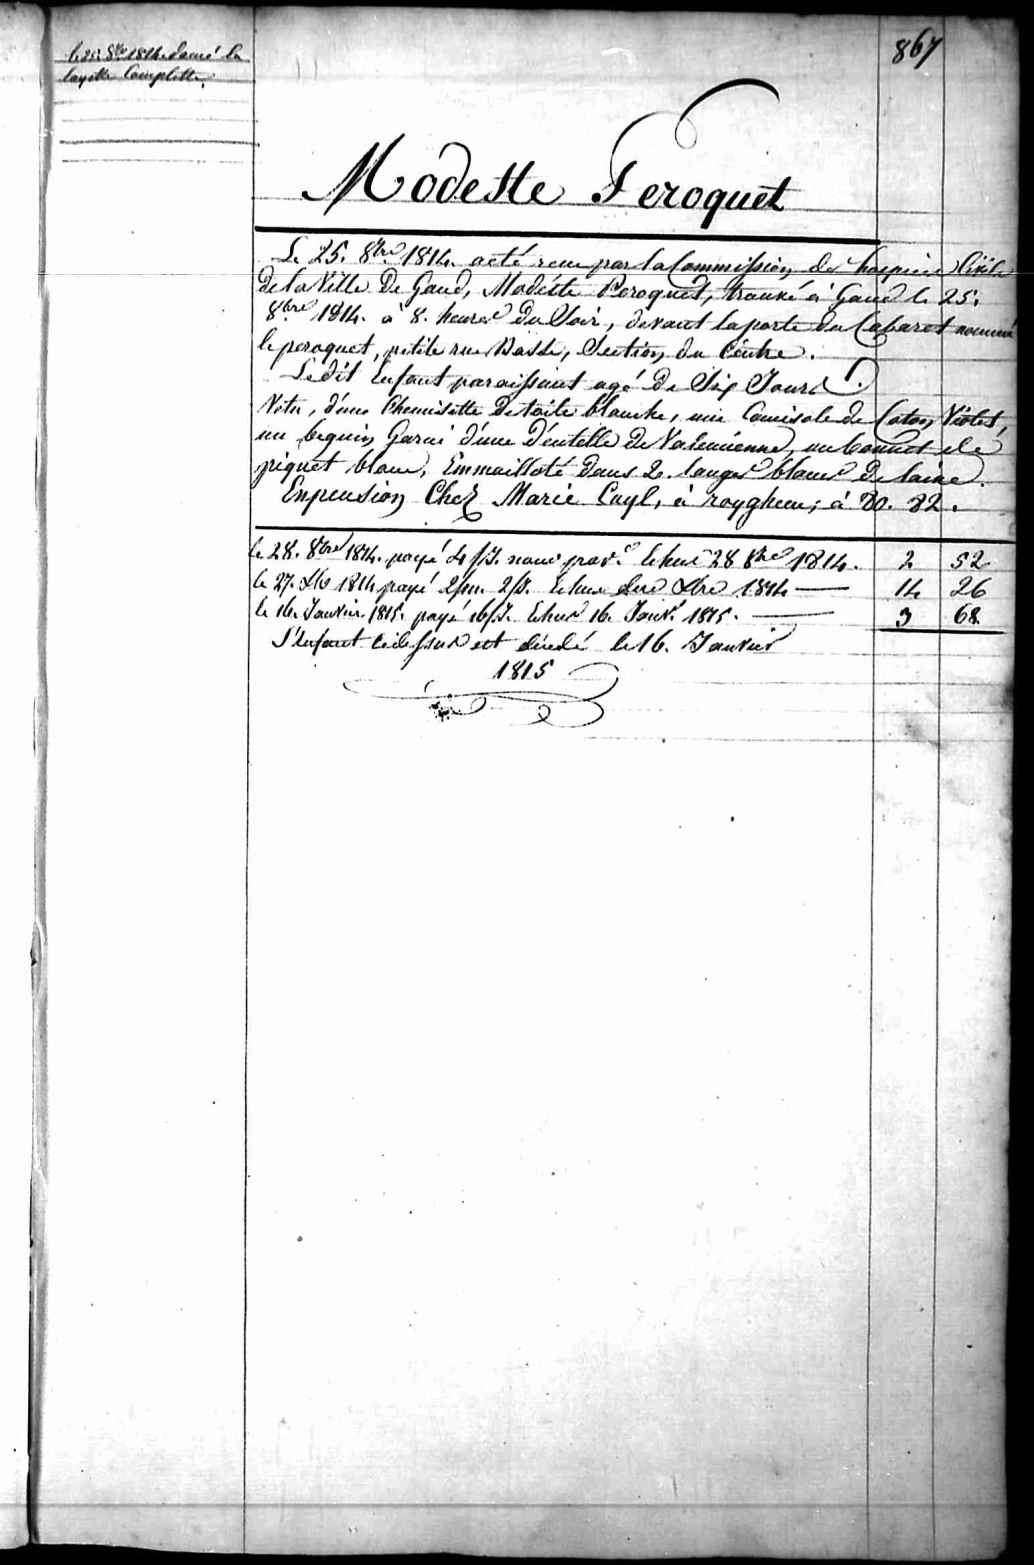 867
le 28 8bre 1814 donné la
layette Complette.
Modeste Peroquet
Le 25. 8bre 1814. a été recu par la Commission des hospices Civils
de la Ville De Gand, Modeste Peroquet, trouvé à Gand le 25.
8bre 1814. à 8. heures Du Soir, devant la porte du Cabaret nommé
le peroquet, petite rue Basse, Section du Centre.
Ledit Enfant paraissant agé De Six Jours.
Vetu, d'une Chemisette De toile blanche, une Camisole de Coton Violet,
un beguin Garni d'une Dentelle De Valencienne, un bonnet de
piquet blanc, Emmailloté dans 2. langes blancs De laine.
En pension Chez Marie Cuyl, à royghem; à 80. 82.
le 28. 8bre 1814. payé 4 echus 28 8bre 1814. 2 52
le 27. Xb 1814 payé 2/m. echus Xbre 1814 14 26
le 16. Janvier 1815. payé 16/J. Echus 16. Janvr 1815. 3 68
L'enfant ci dessus est décédé le 16. Janvier
1815